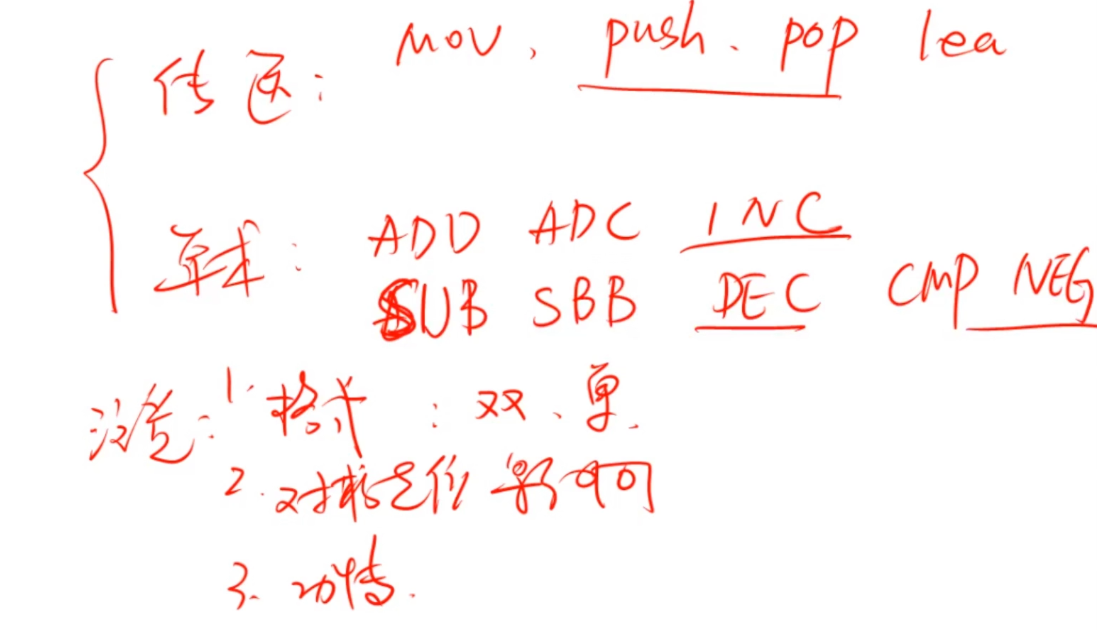 传送: mov, push、pop lea
算术: ADD ADC INC
SUB SBB DEC CMP NEG
注意: 1. 格式: 双、单.
2. 对标志位影响
3. 功能.